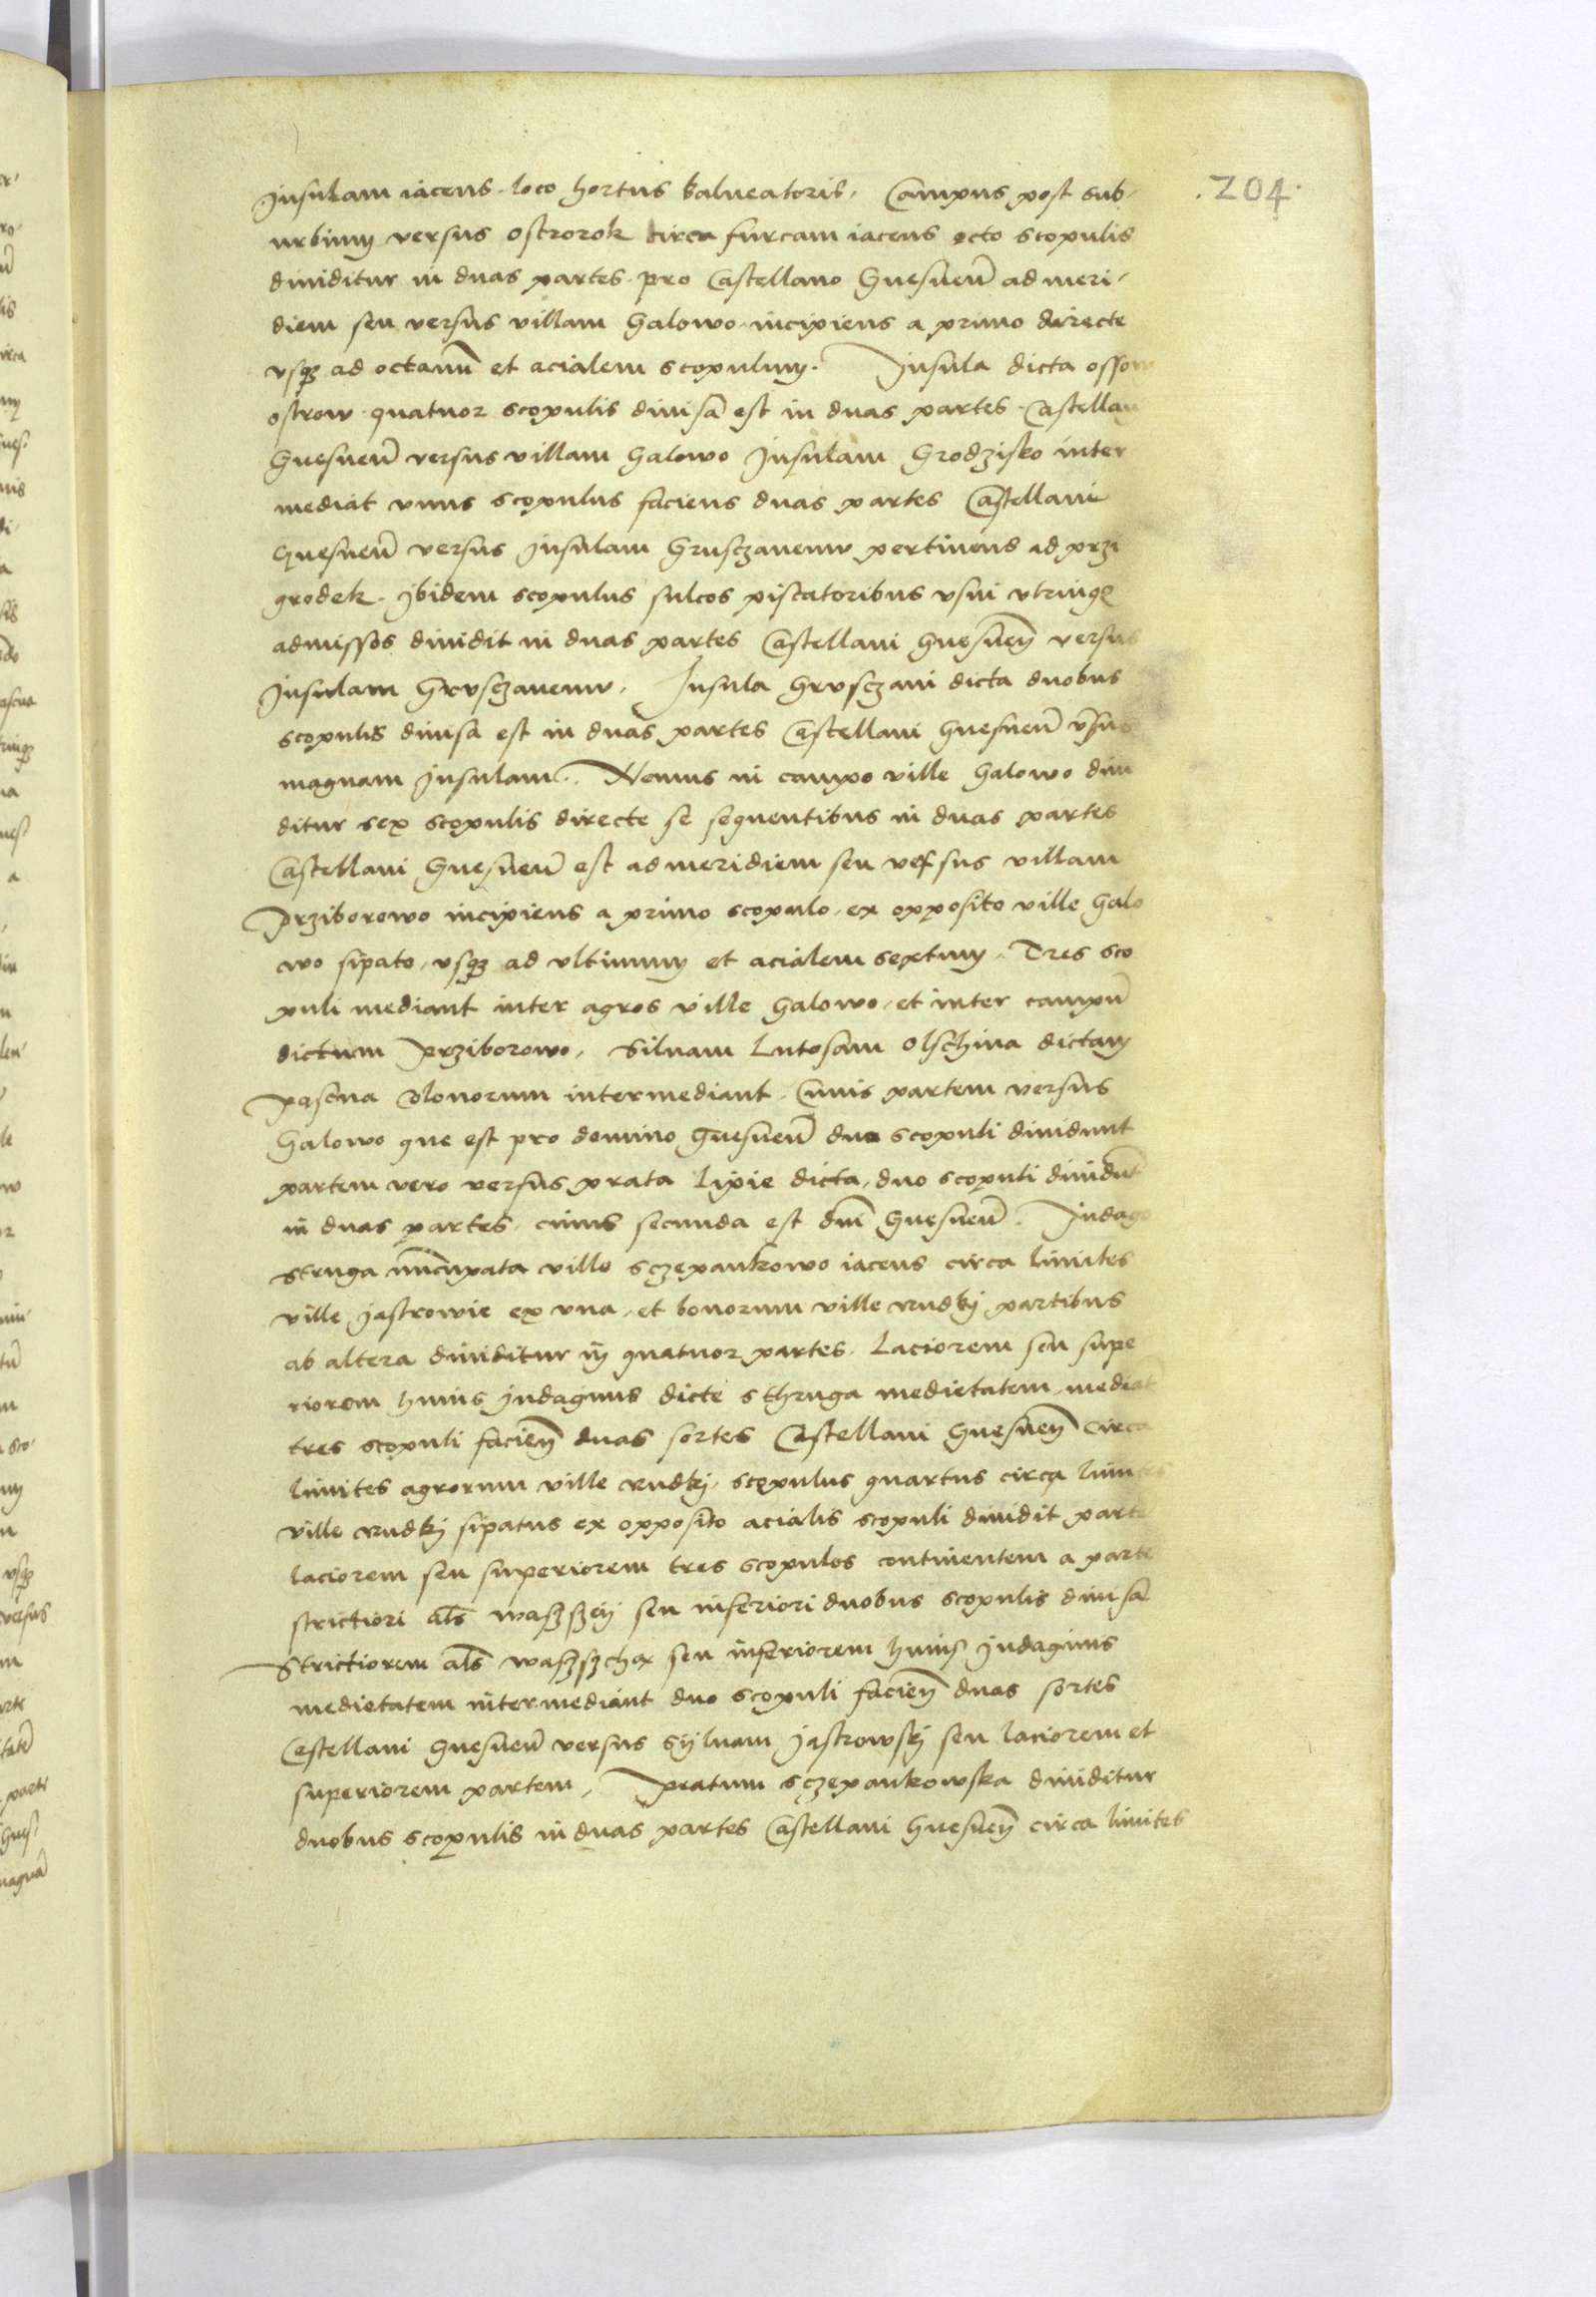 .204.
Insulam iacens loco hortus balneatoris, Campus post sub-
urbium versus ostrorok circa furcam iacens octo scopulis
diuiditur in duas partes pro Castellano Gnesnen̄ ad meri-
diem seu versus villam Galowo incipiens a primo directe
vsq₃ ad octauū et acialem scopulum. Insula dicta ossow
ostrow quatuor scopulis diuisa est in duas partes Castellan
Gnesnen̄ versus villam Galowo Insulam Grodzisko inter
mediat vnus scopulus faciens duas partes Castellani
Gnesnen̄ versus Insulam Grusczanemv pertinens ad przi
grodek. Ibidem scopulus sulcos piscatoribus vsui vtrinq₃
admissos diuidit in duas partes Castellani gnesnen̄ versus
Insulam Grvsczanemv. Insula Grvsczani dicta duobus
scopulis diuisa est in duas partes Castellani gnesnen̄ v̄sus
magnam Insulam. Nemus in campo ville Galowo diui
ditur sex scopulis directe se sequentibus in duas partes
Castellani Gnesnen̄ est ad meridiem seu versus villam
Prziborowo incipiens a primo scopulo ex opposito ville Galo
wo sipato, vsq₃ ad vltimum et acialem sextum. Tres sco
puli mediant inter agros ville Galowo et inter campū
dictum Prziborowo, Siluam Lutosam Olschina dictam
Pascua Colonorum intermediant. Cuius partem versus
Galowo que est pro domino gnesnen̄ duo scopuli diuidunt
partem vero versus prata Lipie dicta, duo scopuli diuidūt
in duas partes, cuius secunda est dn̄i Gnesnen̄. Indago
struga nūcupata ville sczepankowo iacens circa limites
ville Jastrowie ex vna, et bonorum ville rudkj partibus
ab altera diuiditur in quatuor partes. Laciorem seu supe
riorem huius Indaginis dicte sthruga medietatem mediāt
tres scopuli facien̄ duas sortes Castellani Gnesnen̄ circa
limites agrorum ville rudkj. scopulus quartus circa limites
ville rudkj sipatus ex opposito acialis scopuli diuidit parte
laciorem seu superiorem tres scopulos continentem a parte
strictiori al̄s waszszej seu inferiori duobus scopulis diuisa
Strictiorem al̄s waszszcha seu inferiorem huius Indaginis
medietatem intermediant duo scopuli facien̄ duas sortes
Castellani gnesnen̄ versus Syluam Jastrowskj seu laciorem et
superiorem partem, Pratum sczepankowska diuiditur
duobus scopulis in duas partes Castellani Gnesnen̄ circa limites